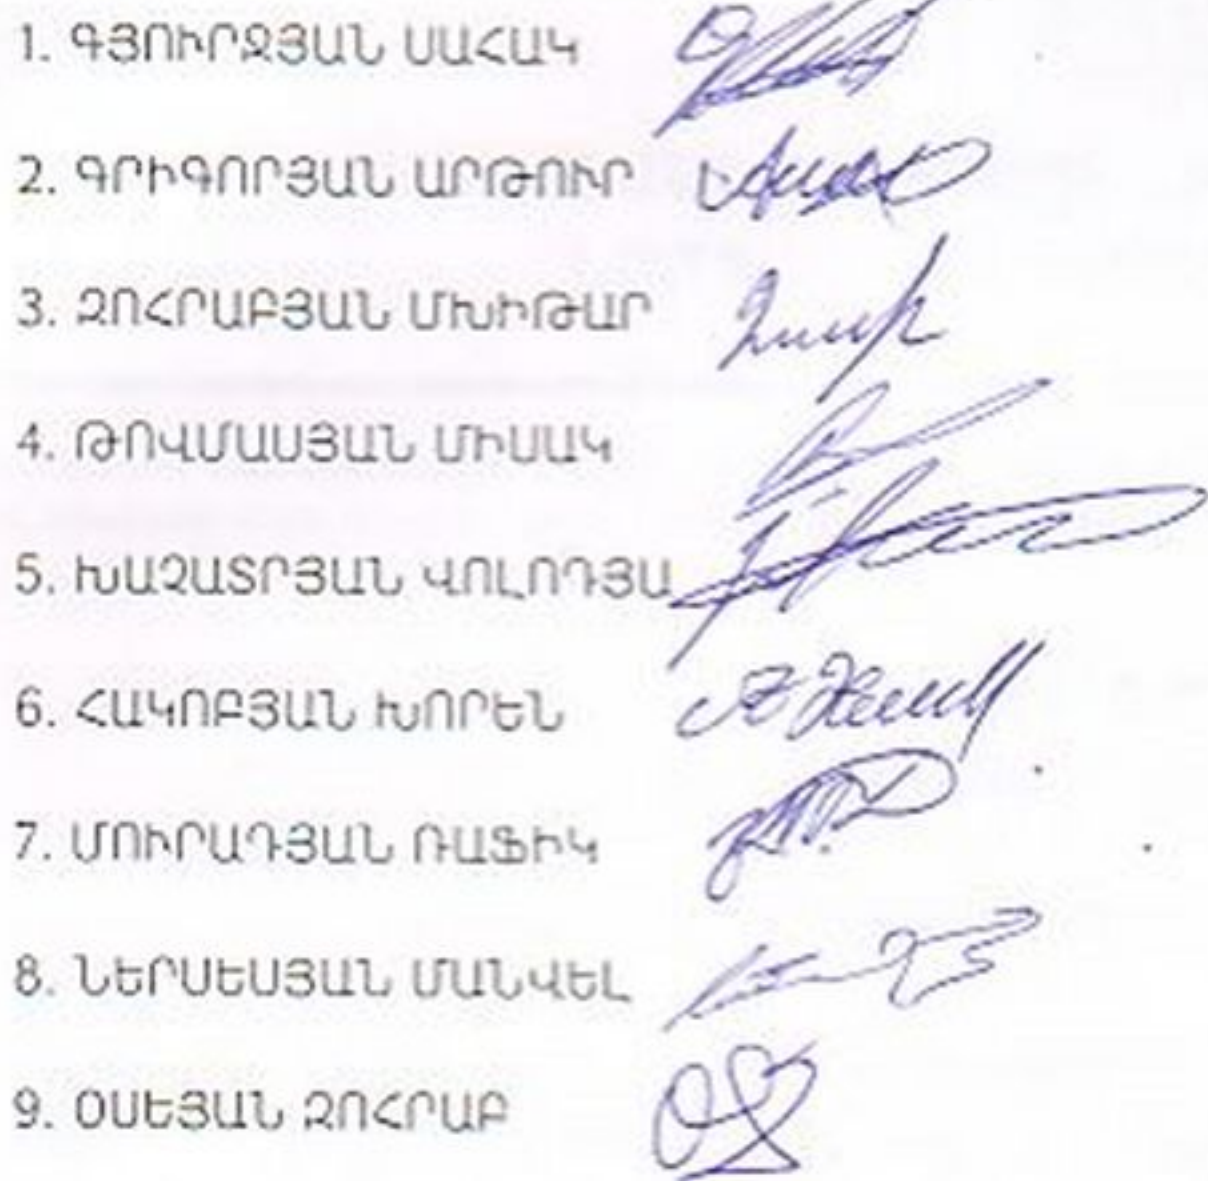 1. ԳՅՈՒՐՋՅԱՆ ՍԱՀԱԿ
2. ԳՐԻԳՈՐՅԱՆ ԱՐԹՈՒՐ
3. ԶՈՀՐԱԲՅԱՆ ՄԽԻԹԱՐ
4. ԹՈՎՄԱՍՅԱՆ ՄԻՍԱԿ
5. ԽԱՉԱՏՐՅԱՆ ՎՈԼՈԴՅԱ
6. ՀԱԿՈԲՅԱՆ ԽՈՐԵՆ
7. ՄՈՒՐԱԴՅԱՆ ՌԱՖԻԿ
8. ՆԵՐՍԵՍՅԱՆ ՄԱՆՎԵԼ
9. ՕՍԵՅԱՆ ԶՈՀՐԱԲ